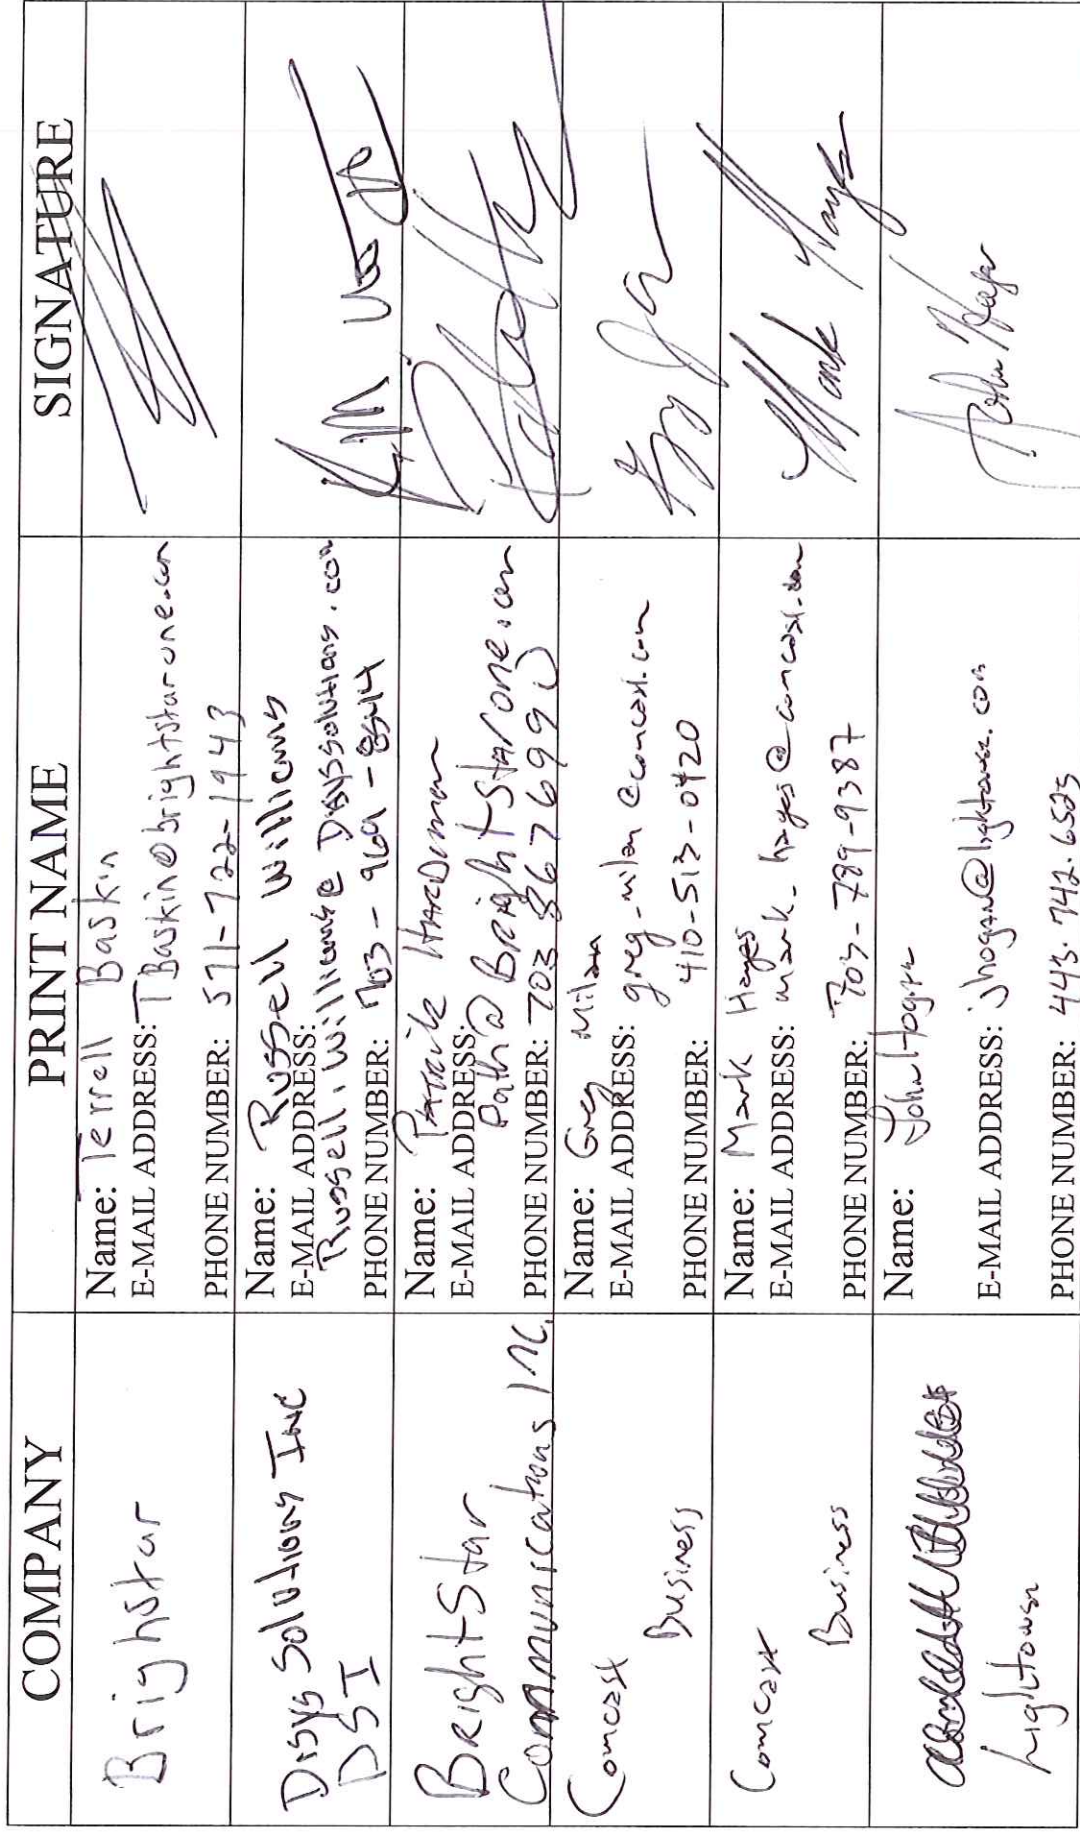 COMPANY
PRINT NAME
SIGNATURE
Brighstar
Name: Terrell Baskin
E-MAIL ADDRESS: TBaskin@brightstarone.com
PHONE NUMBER: 571-722-1943
Disys Solutions Inc
DSI
Name: Russell Williams
E-MAIL ADDRESS:
Russell.Williams@Disyssolutions.com
PHONE NUMBER: 703-969-8544
BrightStar
Communications Inc.
Name: Patrick Hardiman
E-MAIL ADDRESS:
Path@Brightstarone.com
PHONE NUMBER: 703 867 6990
Comcast
Business
Name: Greg Milam
E-MAIL ADDRESS: greg_milam@comcast.com
PHONE NUMBER: 410-513-0420
Comcast
Business
Name: Mark Hayes
E-MAIL ADDRESS: mark_hayes@comcast.com
PHONE NUMBER: 703-789-9387
Mark Hayes
Lightower
Name: John Hogan
E-MAIL ADDRESS: jhogan@lightower.com
PHONE NUMBER: 443.742.6525
John Hogan